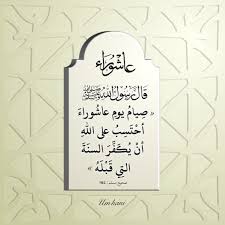 عاشوراء
قَالَ رَسُولُ اللهِ ﷺ
« صِيَامُ يَومِ عَاشُورَاءَ
أَحْتَسِبُ عَلَى اللهِ
أَنْ يُكَفِّرَ السَنَةَ
التِي قَبْلَهُ »
صحيح مسلم / 1162
Um hani